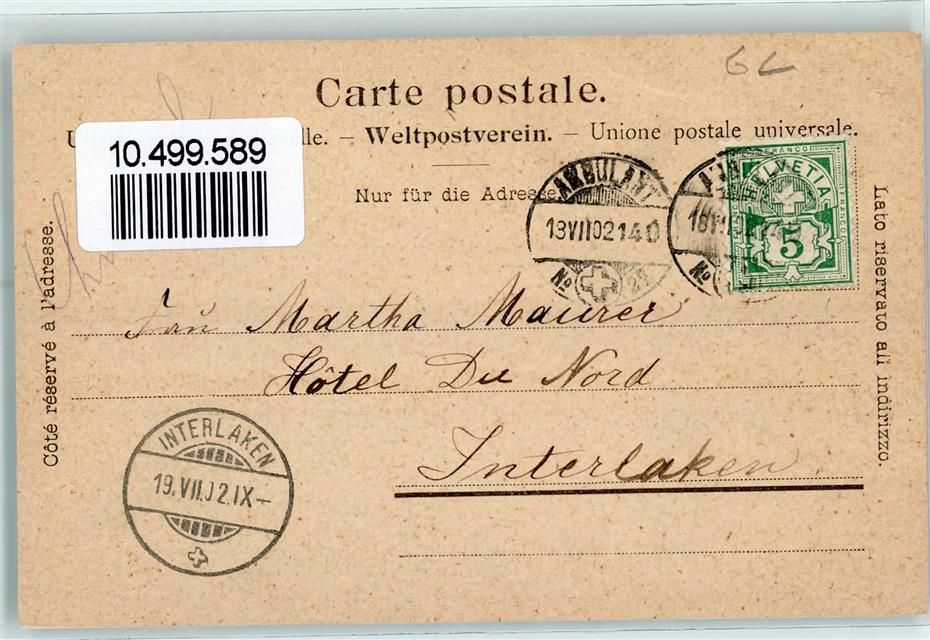 GL
Carte postale.
U lle. – Weltpostverein. – Unione postale universale.
Nur für die Adresse
10.499.589
Côté réservé à l'adresse.
Lato riservato all indirizzo.
AMBULANT
18 VII 02 14 0
No
FRANCO
HELVETIA
FRANCO
5
Martha Maurer
Hôtel Du Nord
Interlaken
INTERLAKEN
19. VII. 02. IX –